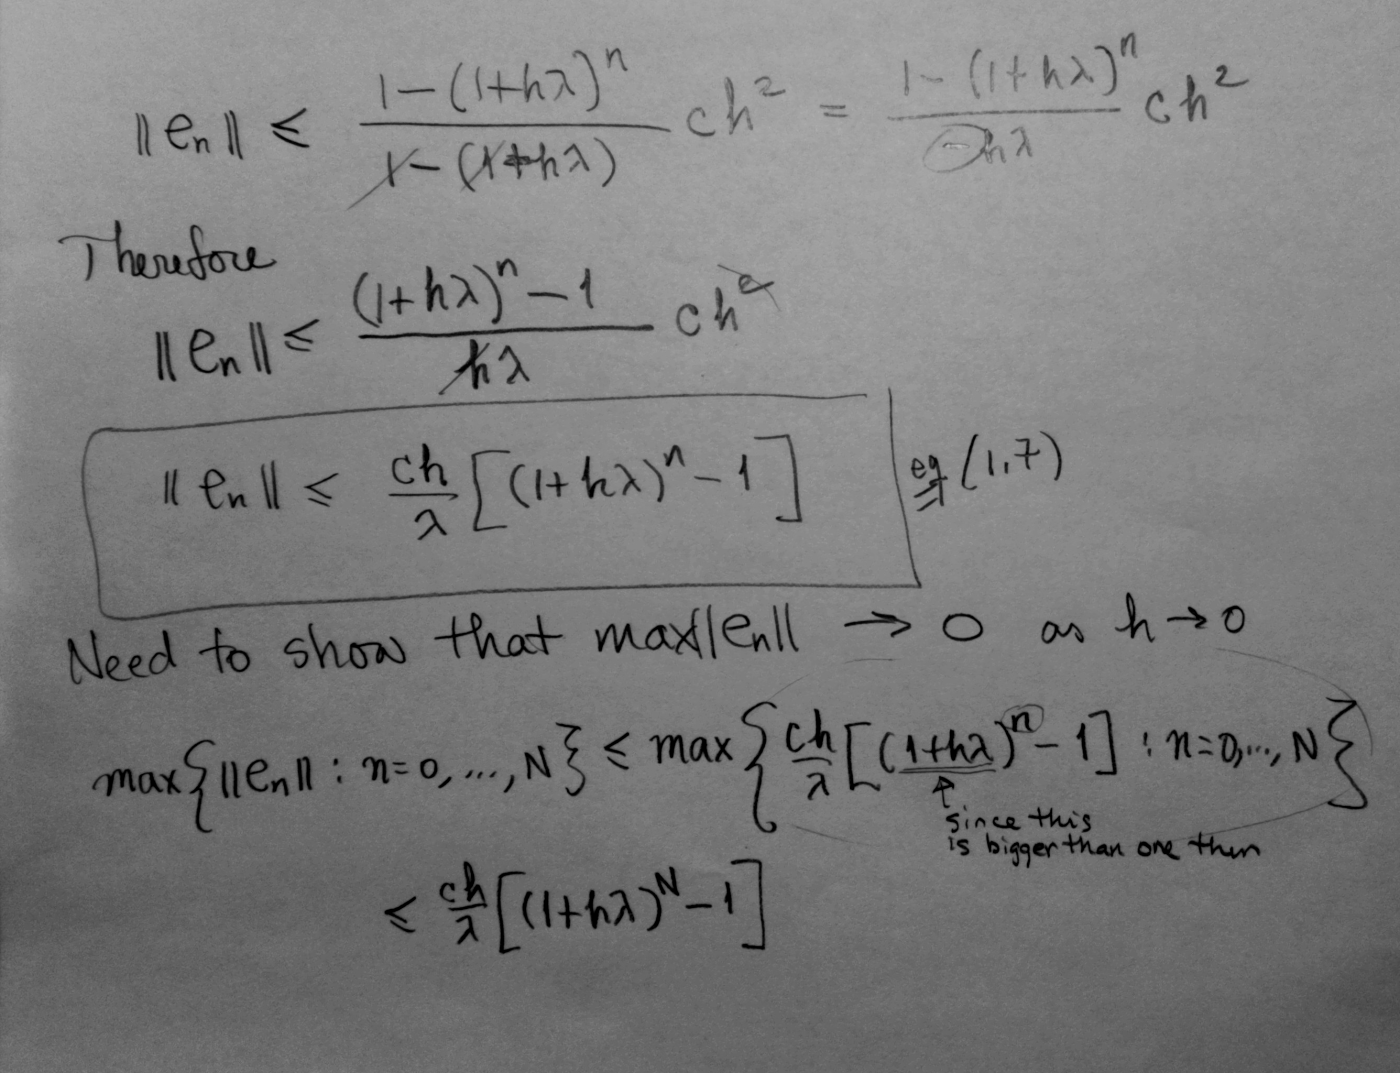 ‖eₙ‖ ≤ \frac{1-(1+hλ)^n}{1-(1+hλ)} ch² = \frac{1-(1+hλ)^n}{-hλ} ch²
Therefore
‖eₙ‖ ≤ \frac{(1+hλ)^n-1}{hλ} ch²
‖eₙ‖ ≤ \frac{ch}{λ} [(1+hλ)^n-1] eq (1.7)
Need to show that max‖eₙ‖ → 0 as h→0
max{‖eₙ‖ : n=0, ..., N} ≤ max{\frac{ch}{λ} [(1+hλ)^n-1] : n=0,..., N}
since this
is bigger than one then
≤ \frac{ch}{λ} [(1+hλ)^N-1]